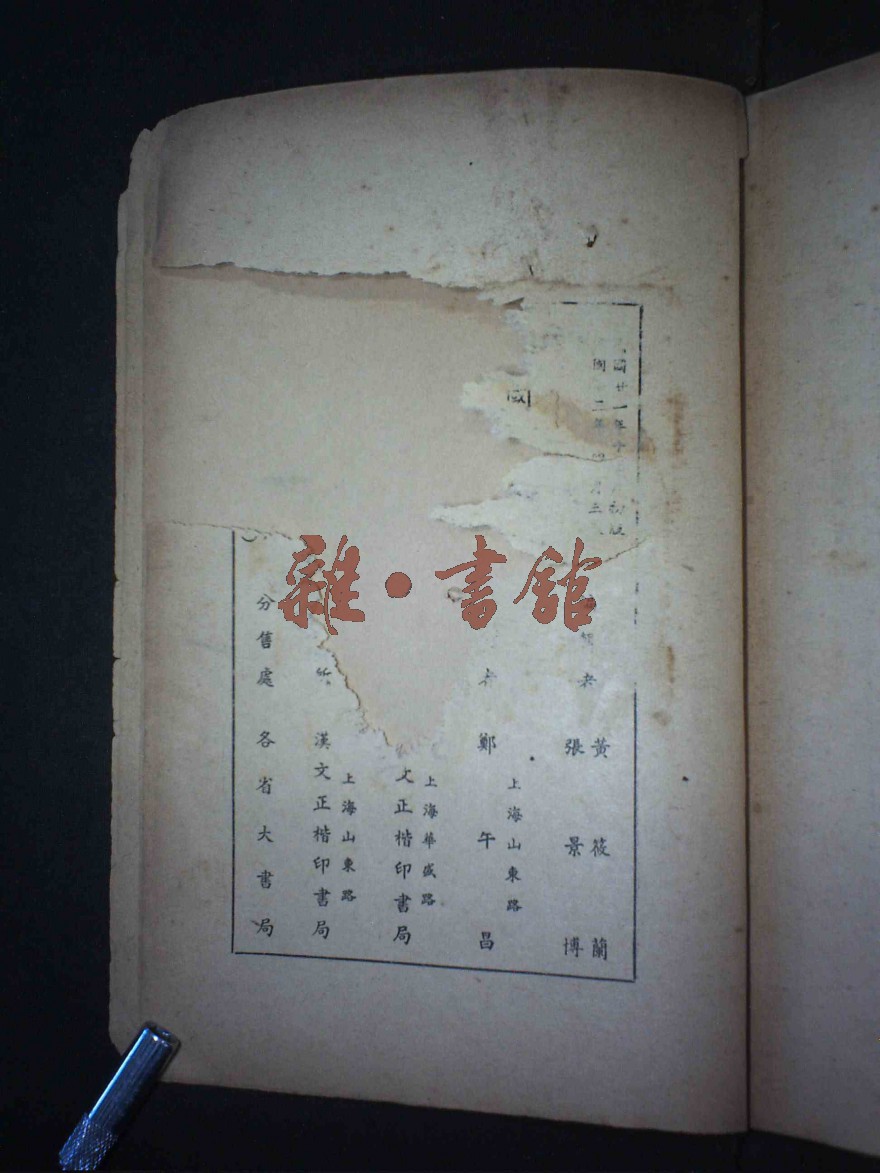 國廿一年十 初版
國 二年 月三
者 黃筱蘭
張景博
上海山東路
者 鄭午昌
上海華盛路
文正楷印書局
上海山東路
所 漢文正楷印書局
分售處 各省大書局
雜·書館